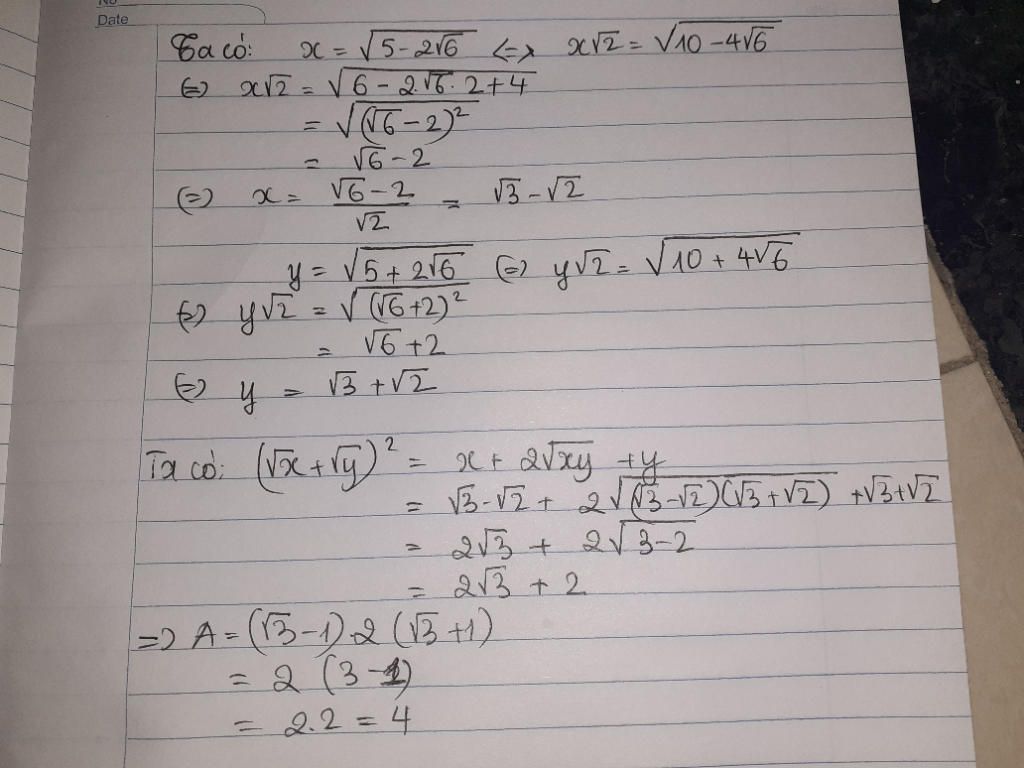 No
Date
Ta có: x = √(5-2√6) <=> x√2 = √(10-4√6)
<=> x√2 = √(6-2√6.2+4)
= √((√6-2)²)
= √6-2
(=) x = (√6-2)/√2 = √3-√2
y = √(5+2√6) (=) y√2 = √(10+4√6)
(=) y√2 = √((√6+2)²)
= √6+2
(=) y = √3+√2
Ta có: (√x+√y)² = x+2√xy+y
= √3-√2+2√((√3-√2)(√3+√2))+√3+√2
= 2√3+2√(3-2)
= 2√3+2
=> A = (√3-1).2(√3+1)
= 2(3-1)
= 2.2 = 4